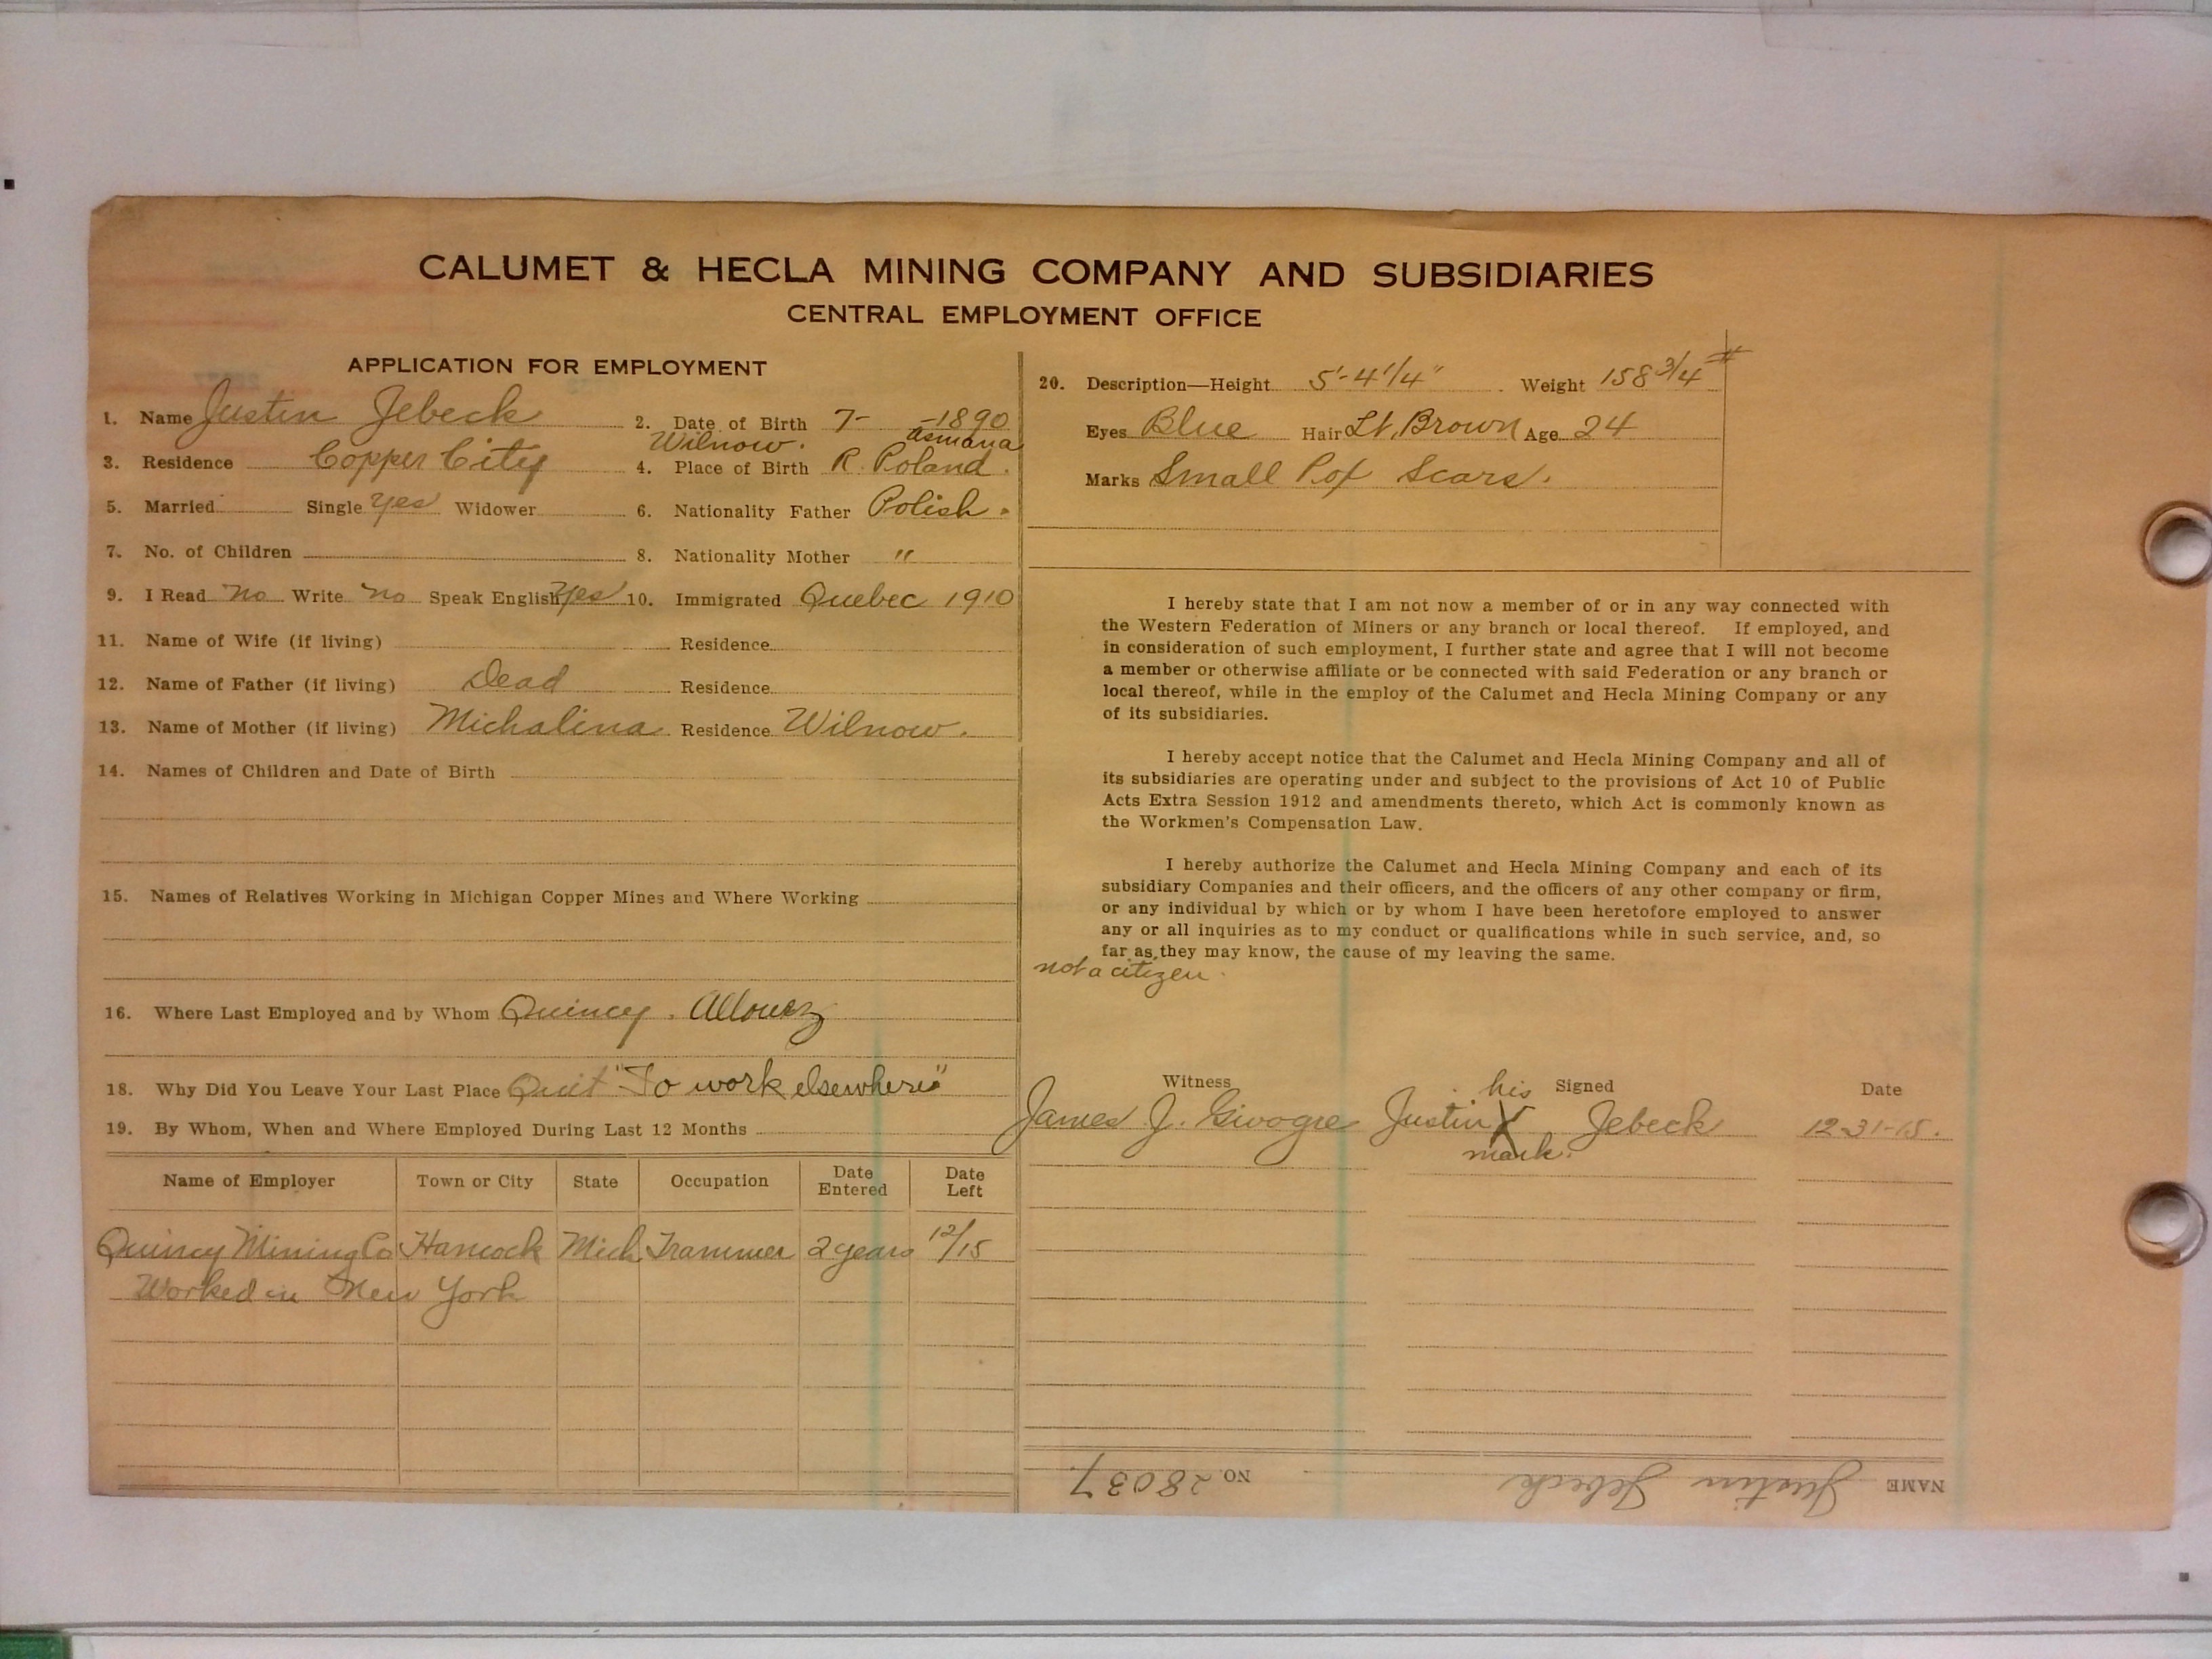 CALUMET & HECLA MINING COMPANY AND SUBSIDIARIES
CENTRAL EMPLOYMENT OFFICE
APPLICATION FOR EMPLOYMENT
1. Name Justin Jebeck 2. Date of Birth 7- -1890
Wilnow. Asmana
3. Residence Copper City 4. Place of Birth R. Poland.
5. Married Single Yes Widower 6. Nationality Father Polish.
7. No. of Children 8. Nationality Mother "
9. I Read no Write no Speak English Yes 10. Immigrated Quebec 1910
11. Name of Wife (if living) Residence
12. Name of Father (if living) Dead Residence
13. Name of Mother (if living) Michalina Residence Wilnow.
14. Names of Children and Date of Birth
15. Names of Relatives Working in Michigan Copper Mines and Where Working
16. Where Last Employed and by Whom Quincy. Allouez
18. Why Did You Leave Your Last Place Quit "To work elsewhere"
19. By Whom, When and Where Employed During Last 12 Months
Name of Employer Town or City State Occupation Date Entered Date Left
Quincy Mining Co Hancock Mich Trammer 2 years 12/15
Worked in New York
20. Description—Height 5'-4 1/4" Weight 158 3/4 #
Eyes Blue Hair Lt. Brown Age 24
Marks Small Pox Scars.
I hereby state that I am not now a member of or in any way connected with
the Western Federation of Miners or any branch or local thereof. If employed, and
in consideration of such employment, I further state and agree that I will not become
a member or otherwise affiliate or be connected with said Federation or any branch or
local thereof, while in the employ of the Calumet and Hecla Mining Company or any
of its subsidiaries.
I hereby accept notice that the Calumet and Hecla Mining Company and all of
its subsidiaries are operating under and subject to the provisions of Act 10 of Public
Acts Extra Session 1912 and amendments thereto, which Act is commonly known as
the Workmen's Compensation Law.
I hereby authorize the Calumet and Hecla Mining Company and each of its
subsidiary Companies and their officers, and the officers of any other company or firm,
or any individual by which or by whom I have been heretofore employed to answer
any or all inquiries as to my conduct or qualifications while in such service, and, so
far as they may know, the cause of my leaving the same.
not a citizen.
Witness his Signed Date
James J. Givogre Justin X Jebeck 12-31-15.
mark.
NAME Justin Jebeck NO. 28037